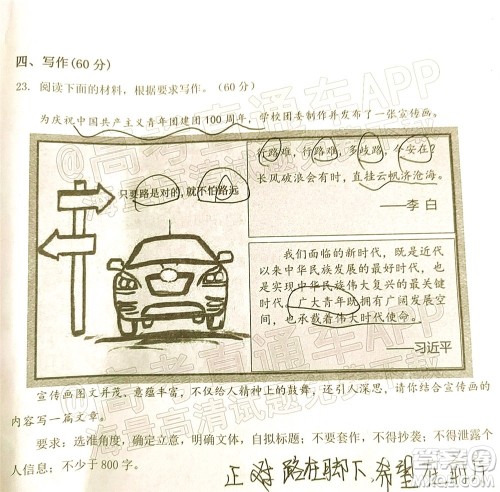 四、写作(60分)
23. 阅读下面的材料，根据要求写作。(60分)
为庆祝中国共产主义青年团建团100周年，学校团委制作并发布了一张宣传画。
只要路是对的，就不怕路远
行路难，行路难，多歧路，今安在？
长风破浪会有时，直挂云帆济沧海。
——李白
我们面临的新时代，既是近代
以来中华民族发展的最好时代，也
是实现中华民族伟大复兴的最关键
时代。广大青年既拥有广阔发展空
间，也承载着伟大时代使命。
——习近平
宣传画图文并茂，意蕴丰富，不仅给人精神上的鼓舞，还引人深思，请你结合宣传画的
内容写一篇文章。
要求：选准角度，确定立意，明确文体，自拟标题；不要套作，不得抄袭；不得泄露个
人信息；不少于800字。
路在脚下 希望在
@高考直通车APP
海量高清试题免费下载